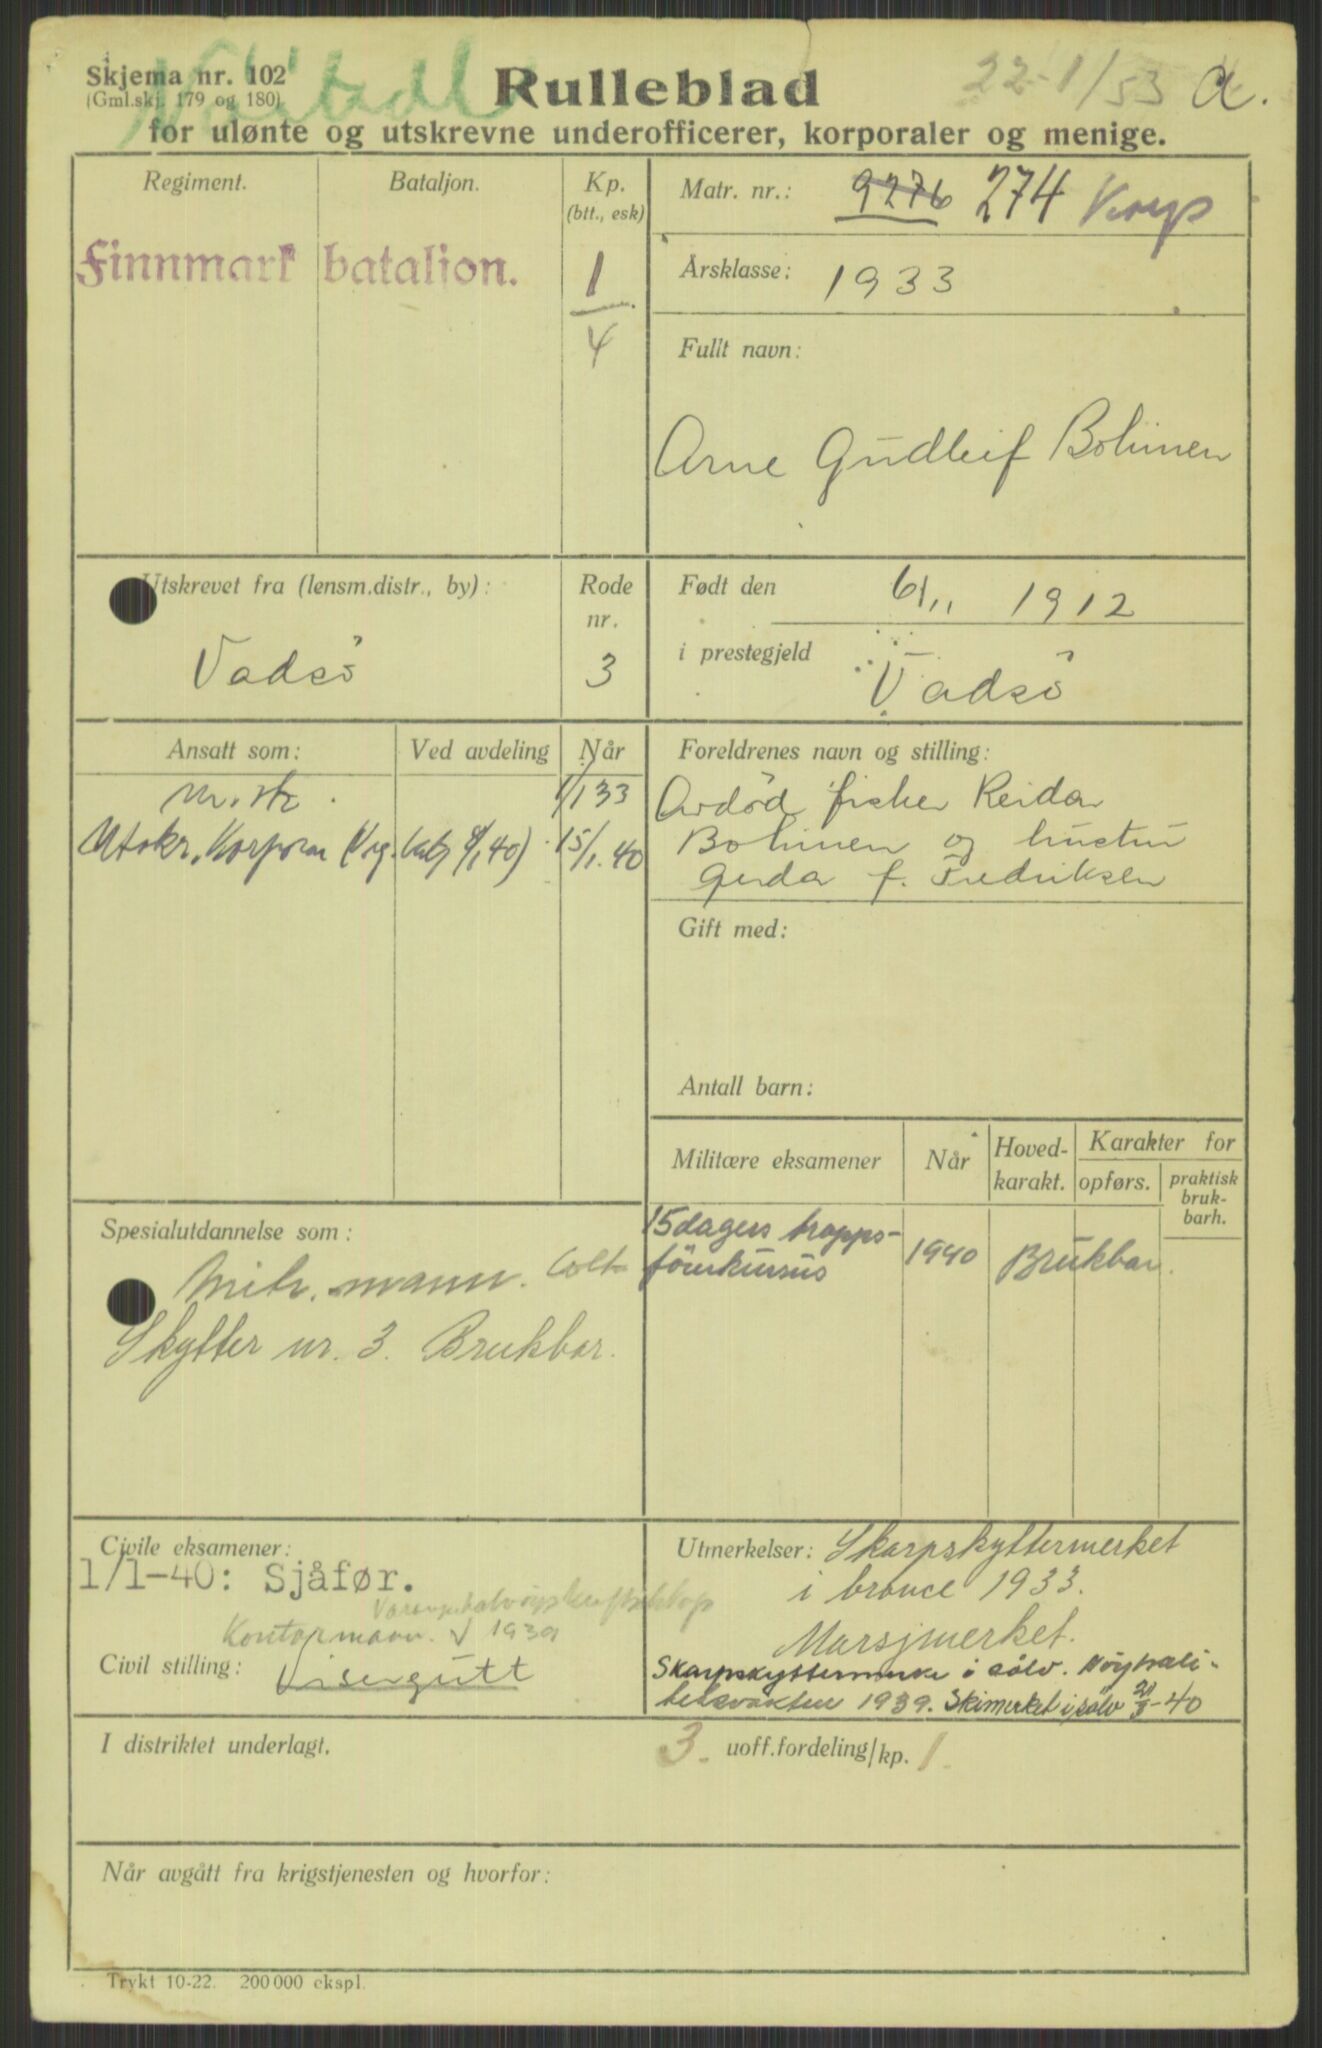 Skjema nr. 102
(Gml.skj. 179 og 180)
Rulleblad
22-1/53 a.
for ulønte og utskrevne underofficerer, korporaler og menige.
Regiment.
Bataljon.
Kp.
(btt., esk)
Finnmark bataljon.
1
4
Matr. nr.: 9276 274 Korp
Årsklasse: 1933
Fullt navn:
Arne Gudleif Bohinen
Utskrevet fra (lensm.distr., by):
Vadsö
Rode
nr.
3
Født den 6/11 1912
i prestegjeld Vadsö
Ansatt som:
Ved avdeling
Når
m.sk. 1/1 33
Utskr. Korporal 15/1. 40
Foreldrenes navn og stilling:
Avdöd fisker Reidar
Bohinen og hustru
Gerda f. Fredriksen
Gift med:
Antall barn:
Militære eksamener
Når
Hoved-
karakt.
Karakter for
opførs.
praktisk
bruk-
barh.
15 dagers tropps-
förerkursus
1940
Brukbar.
Spesialutdannelse som:
Mitr. mann. Colt
Skytter nr. 3. Brukbar.
Civile eksamener:
1/1-40: Sjåfør.
Kontormann. 1939
Civil stilling: Visergutt
Utmerkelser: Skarpskyttermerket
i bronce 1933.
Marsjmerket.
Skarpskyttermerke i sölv. Nöytrali-
tetsvakten 1939. Skimerket i sölv 20/3-40
I distriktet underlagt.
3. uoff.fordeling/kp. 1.
Når avgått fra krigstjenesten og hvorfor:
Trykt 10-22. 200 000 ekspl.